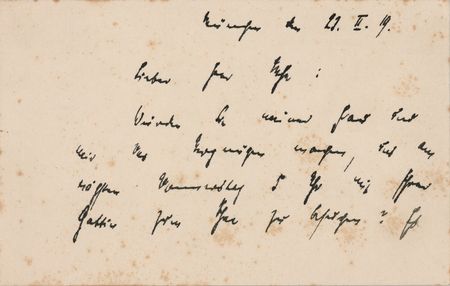 München den 23. II. 19.
Lieber Herr
Würden Sie meiner Frau und
mir das Vergnügen machen, uns am
nächsten Donnerstag 5 Uhr mit Ihrer
Gattin zum Thee zu besuchen? Es